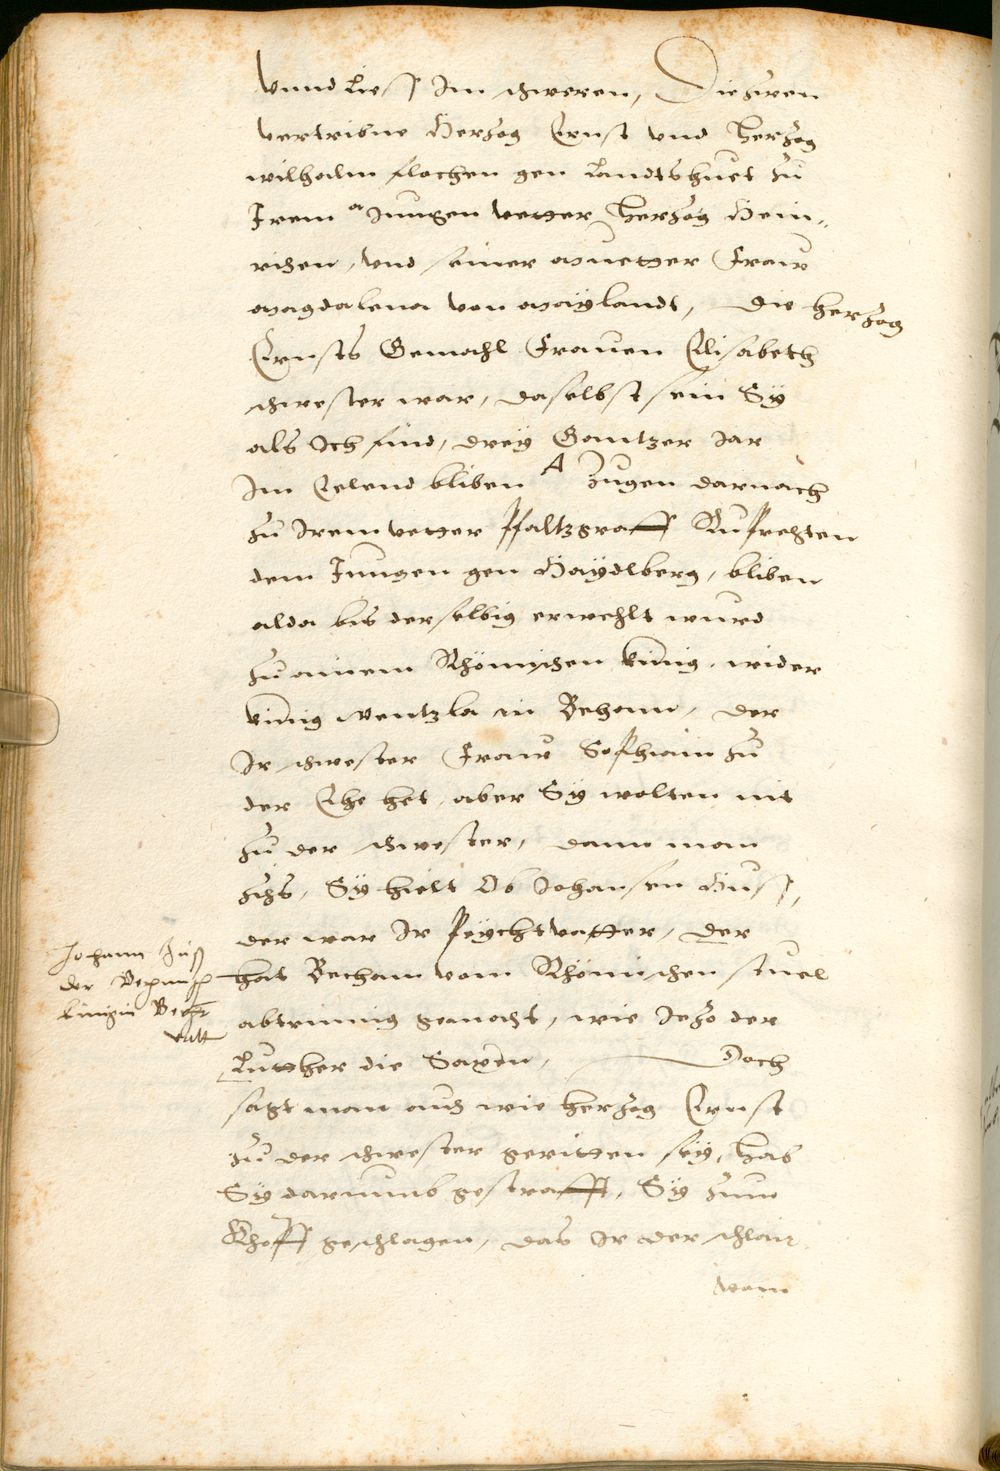 Vnnd Liess Im schweren, Die Herrn
vertribne Herzog Ernst vnd Herzog
wilhalm flochen gen Landtshuet zu
Irem Jungen vetter Herzog Hein-
richen, vnd seiner muetter Fraw
Magdalena von Maylandt, Die Herzog
Ernsts Gemahl Frauen Elisabeth
schwester war, daselbst sein Sy
als Ich find, drey Gantzer Jar
Im Eelend bliben A Zugen darnach
zu Irem vetter Pfaltzgraff Ruprechten
dem Jungen gen Haydlberg, bliben
alda bis derselbig erwehlt wurd
zu ainem Rhömischen künig, wider
künig Wentzla in Behem, der
Ir schwester Fraw Sophiam zu
der Ehe het, aber Sy wolten nit
zu der schwester, dann man
zihs, Sy hielt Ob Johansen Huss,
der war Ir Peychtvatter, der
hat Becham vom Rhömischen stuel
abtrinnig gemacht, wie Jezo der
Luther die Saxen, Doch
sagt man auch wie Herzog Ernst
zu der schwester geritten sey, hab
Sy darumb gestrafft, Sy zum
Khopff geschlagen, das Ir der schlair
vom
Johann Huß
der Behmisch
künigin Beicht
vatt